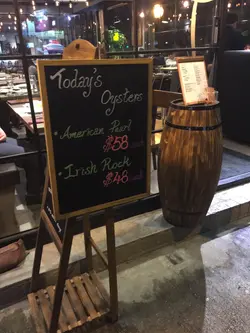 Today's
Oysters
• American Pearl
$58 each
• Irish Rock
$48 each